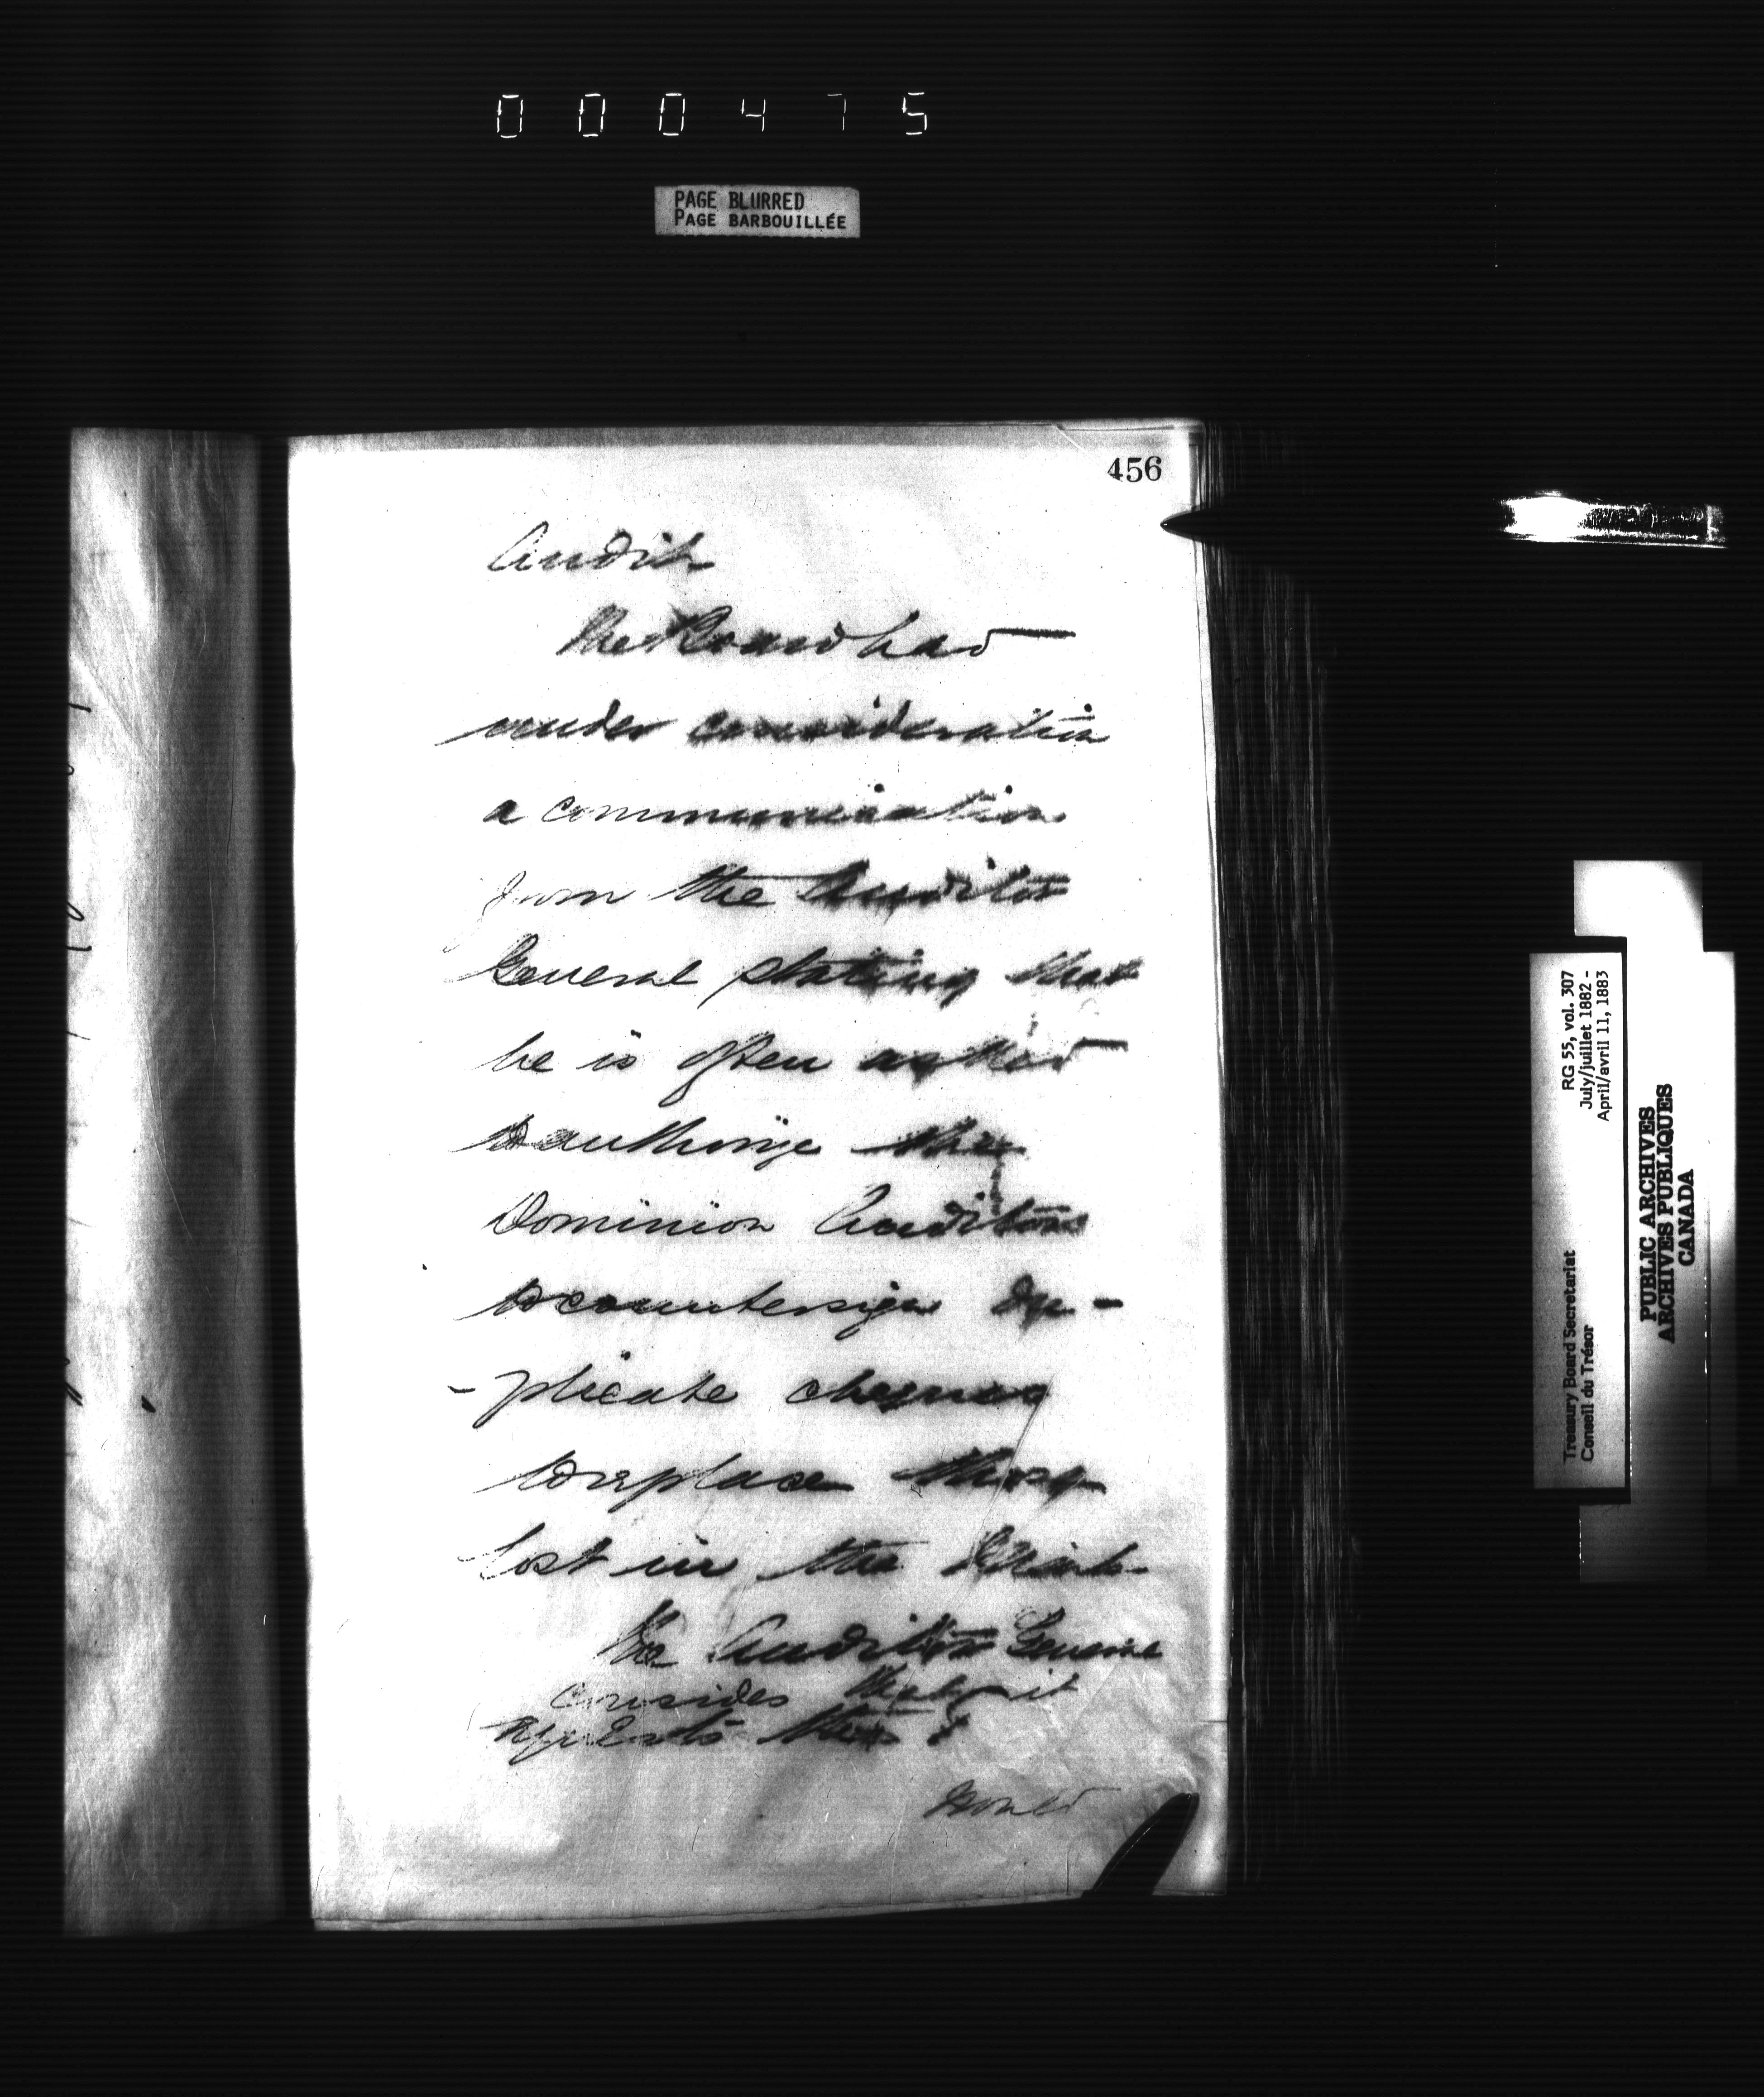 000475
PAGE BLURRED
PAGE BARBOUILLÉE
456
Audit
The Board had
under consideration
a communication
from the Auditor
General stating that
he is often asked
to authorize the
Dominion Auditors
to countersign du-
-plicate cheques
to replace those
lost in the
The Auditor General
considers that it
this &
would
RG 55, vol. 307
July/juillet 1882 -
April/avril 11, 1883
Treasury Board Secretariat
Conseil du Trésor
PUBLIC ARCHIVES
ARCHIVES PUBLIQUES
CANADA